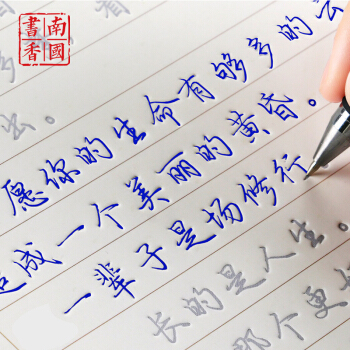 南國
書香
愿你的生命有够多的
成一个美丽的黄昏。
一辈子是场修行
长的是人生。
那个更